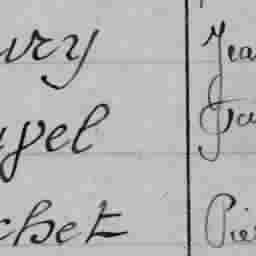 ury Jea
gel Ja
chet Pie